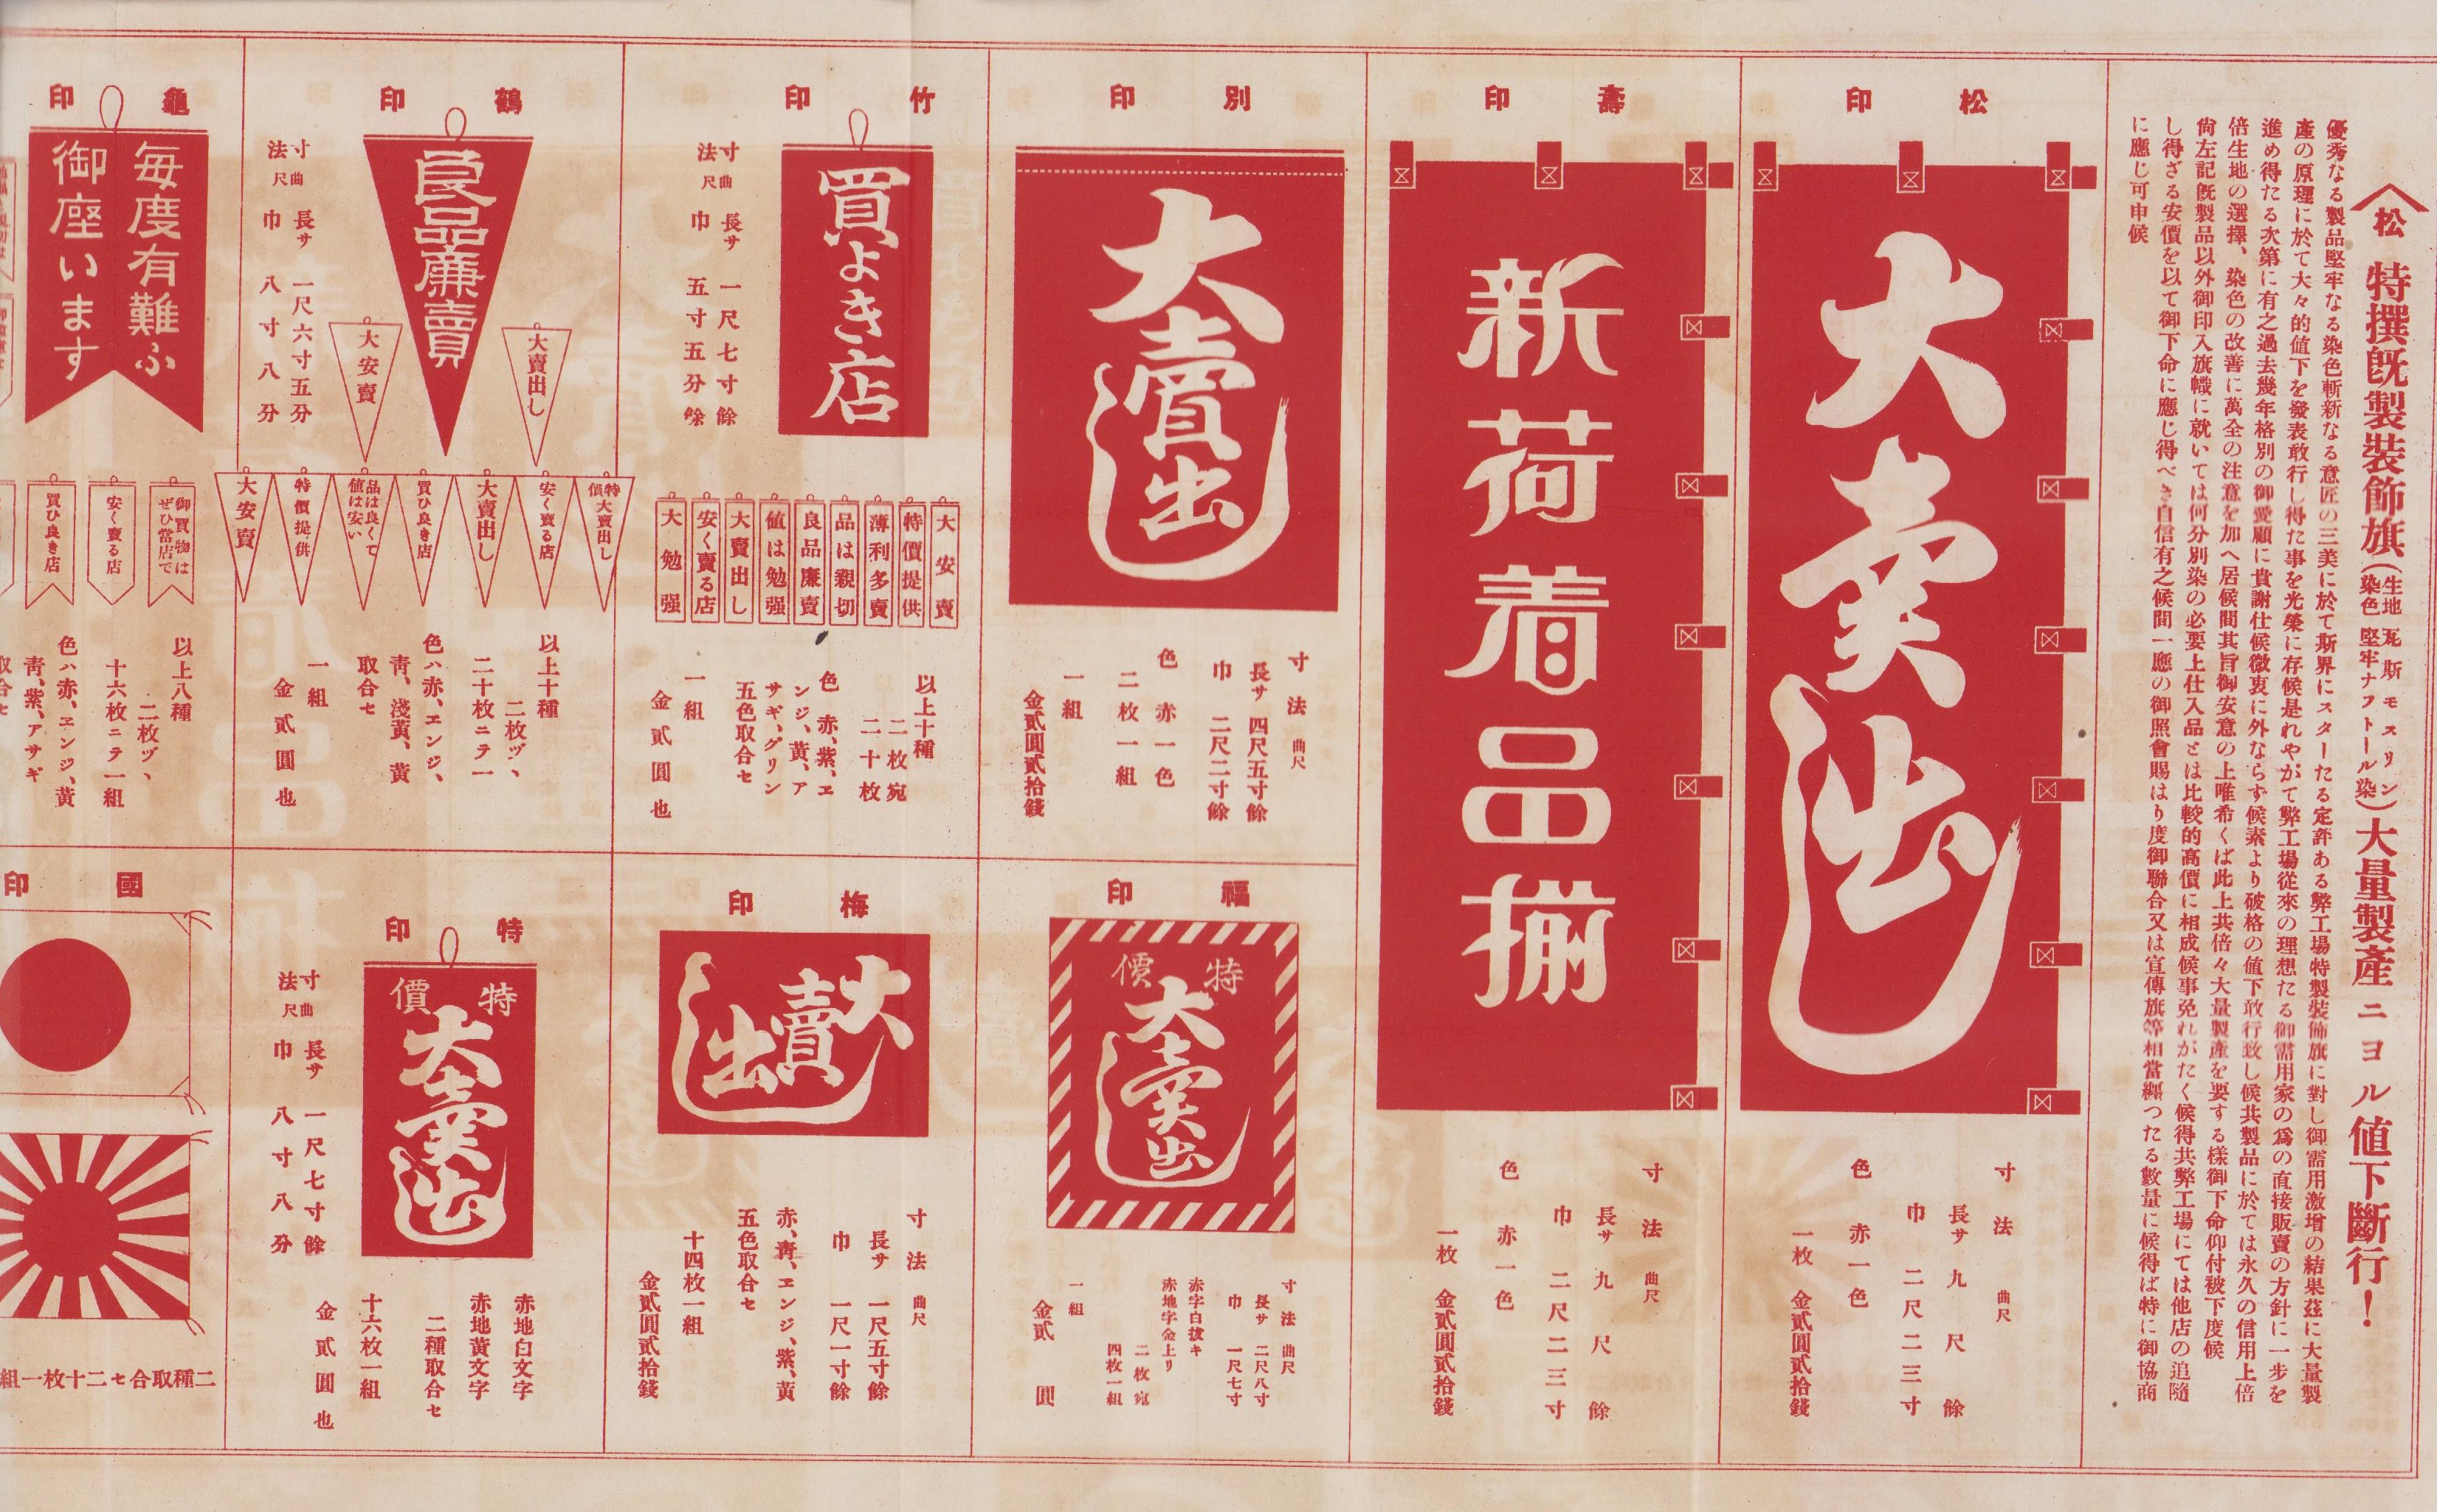 松
特撰既製装飾旗(生地 瓦斯モスリン 染色 堅牢ナフトール染)大量製産ニヨル値下斷行!
優秀なる製品堅牢なる染色斬新なる意匠の三美に於て斯界にスターたる定評ある弊工場特製裝飾旗に對し御需用激增の結果茲に大量製
產の原理に於て大々的値下を發表敢行し得た事を光榮に存候是れやがて弊工場從來の理想たる御需用家の爲の直接販賣の方針に一步を
進め得たる次第に有之過去幾年格別の御愛顧に貴謝仕候微衷に外ならず候素より破格の値下敢行致し候共製品に於ては永久の信用上倍
倍生地の選擇、染色の改善に萬全の注意を加へ居候間其旨御安意の上唯希くば此上共倍々大量製產を要する樣御下命仰付被下度候
尙左記既製品以外御印入旗幟に就いては何分別染の必要上仕入品とは比較的高價に相成候事免れがたく候得共弊工場にては他店の追隨
し得ざる安價を以て御下命に應じ得べき自信有之候間一應の御照會賜はり度御聯合又は宣傳旗等相當纏つたる數量に候得ば特に御協商
に應じ可申候
松印
大売出
寸法 曲尺
長サ 九尺餘
巾 二尺二三寸
色 赤一色
一枚 金貳圓貳拾錢
壽印
新荷着品揃
寸法 曲尺
長サ 九尺餘
巾 二尺二三寸
色 赤一色
一枚 金貳圓貳拾錢
別印
大賣出
寸法 曲尺
長サ 四尺五寸餘
巾 二尺二寸餘
色 赤一色
二枚一組
一組
金貳圓貳拾錢
福印
特價
大売出
寸法 曲尺
長サ 二尺八寸
巾 一尺七寸
赤字白拔キ
赤地字金上リ
二枚宛
四枚一組
一組
金貳圓
竹印
買よき店
寸法 曲尺
長サ 一尺七寸餘
巾 五寸五分餘
大安賣
特價提供
薄利多賣
品は親切
良品廉賣
値は勉强
大賣出し
安く賣る店
大勉强
以上十種
二枚宛
二十枚
色 赤、紫、エ
ンジ、黃、ア
サギ、グリン
五色取合セ
一組
金貳圓也
梅印
大賣出
寸法 曲尺
長サ 一尺五寸餘
巾 一尺一寸餘
赤、靑、エンジ、紫、黃
五色取合セ
十四枚一組
金貳圓貳拾錢
鶴印
良品廉賣
寸法 曲尺
長サ 一尺六寸五分
巾 八寸八分
大賣出し
大安賣
特價大賣出し
安く賣る店
大賣出し
買ひ良き店
品は良くて
値は安い
特價提供
大安賣
以上十種
二枚ヅヽ
二十枚ニテ一
色ハ赤、エンジ、
靑、淺黃、黃
取合セ
一組
金貳圓也
特印
特價
大売出
寸法 曲尺
長サ 一尺七寸餘
巾 八寸八分
赤地白文字
赤地黃文字
二種取合セ
十六枚一組
金貳圓也
龜印
每度有難ふ
御座います
御買物は
ぜひ當店で
安く賣る店
買ひ良き店
以上八種
二枚ヅヽ
十六枚ニテ一組
色ハ赤、エンジ、黃
靑、紫、アサギ
取合セ
國印
二種取合セ二十枚一組